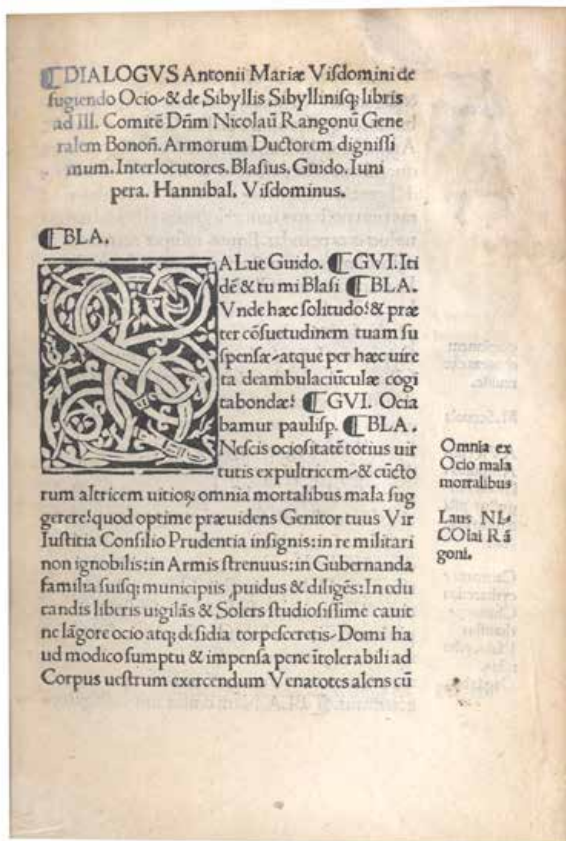 ⸿DIALOGVS Antonii Mariæ Viſdomini de
fugiendo Ocio·& de Sibyllis Sibylliniſqꝫ libris
ad III. Comitẽ Dñm Nicolaũ Rangonũ Gene
ralem Bonoñ. Armorum Ductorem digniſſi
mum. Interlocutores. Blaſius. Guido. Iuni
pera. Hannibal. Viſdominus.
⸿BLA.
SALue Guido. ⸿GVI. Iti
dẽ & tu mi Blaſi ⸿BLA.
Vnde hæc ſolitudo? & præ
ter cõſuetudinem tuam ſu
ſpenſæ·atque per hæc uire
ta deambulaciũculæ cogi
tabondæ? ⸿GVI. Ocia
bamur pauliſp. ⸿BLA.
Neſcis ocioſitatẽ totius uir
tutis expultricem·& cũcto
rum altricem uitioꝝ omnia mortalibus mala ſug
gerere? quod optime præuidens Genitor tuus Vir
Iuſtitia Conſilio Prudentia inſignis: in re militari
non ignobilis: in Armis ſtrenuus: in Gubernanda
familia ſuiſqꝫ municipiis ꝓuidus & diligẽs: In edu
candis liberis uigilãs & Solers ſtudioſiſſime cauit
ne lãgore ocio atqꝫ deſidia torpeſceretis· Domi ha
ud modico ſumptu & impenſa pene ĩtolerabili ad
Corpus ueſtrum exercendum Venatotes alens cũ
Omnia ex
Ocio mala
mortalibus
Laus NI·
COlai Rã
goni.